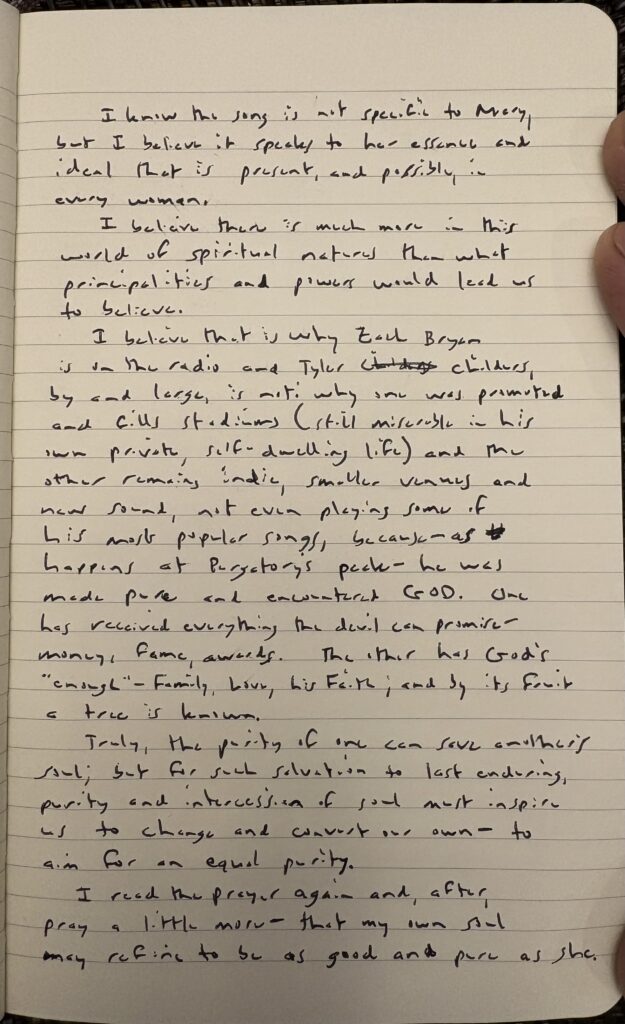 I know the song is not specific to Mary,
but I believe it speaks to her essence and
ideal that is present, and possibly, in
every woman.
I believe there is much more in this
world of spiritual natures than what
principalities and powers would lead us
to believe.
I believe that is why Zach Bryan
is on the radio and Tyler Childers,
by and large, is not: why one was promoted
and fills stadiums (still miserable in his
own private, self-dwelling life) and the
other remains indie, smaller venues and
new sound, not even playing some of
his most popular songs, because—as
happens at Purgatory's peak—he was
made pure and encountered GOD. One
has received everything the devil can promise—
money, fame, awards. The other has God's
"enough"—Family, Love, his Faith; and by its fruit
a tree is known.
Truly, the purity of one can save another's
soul; but for such salvation to last enduring,
purity and intercession of soul must inspire
us to change and convert our own—to
aim for an equal purity.
I read the prayer again and, after,
pray a little more—that my own soul
may refine to be as good and pure as she.